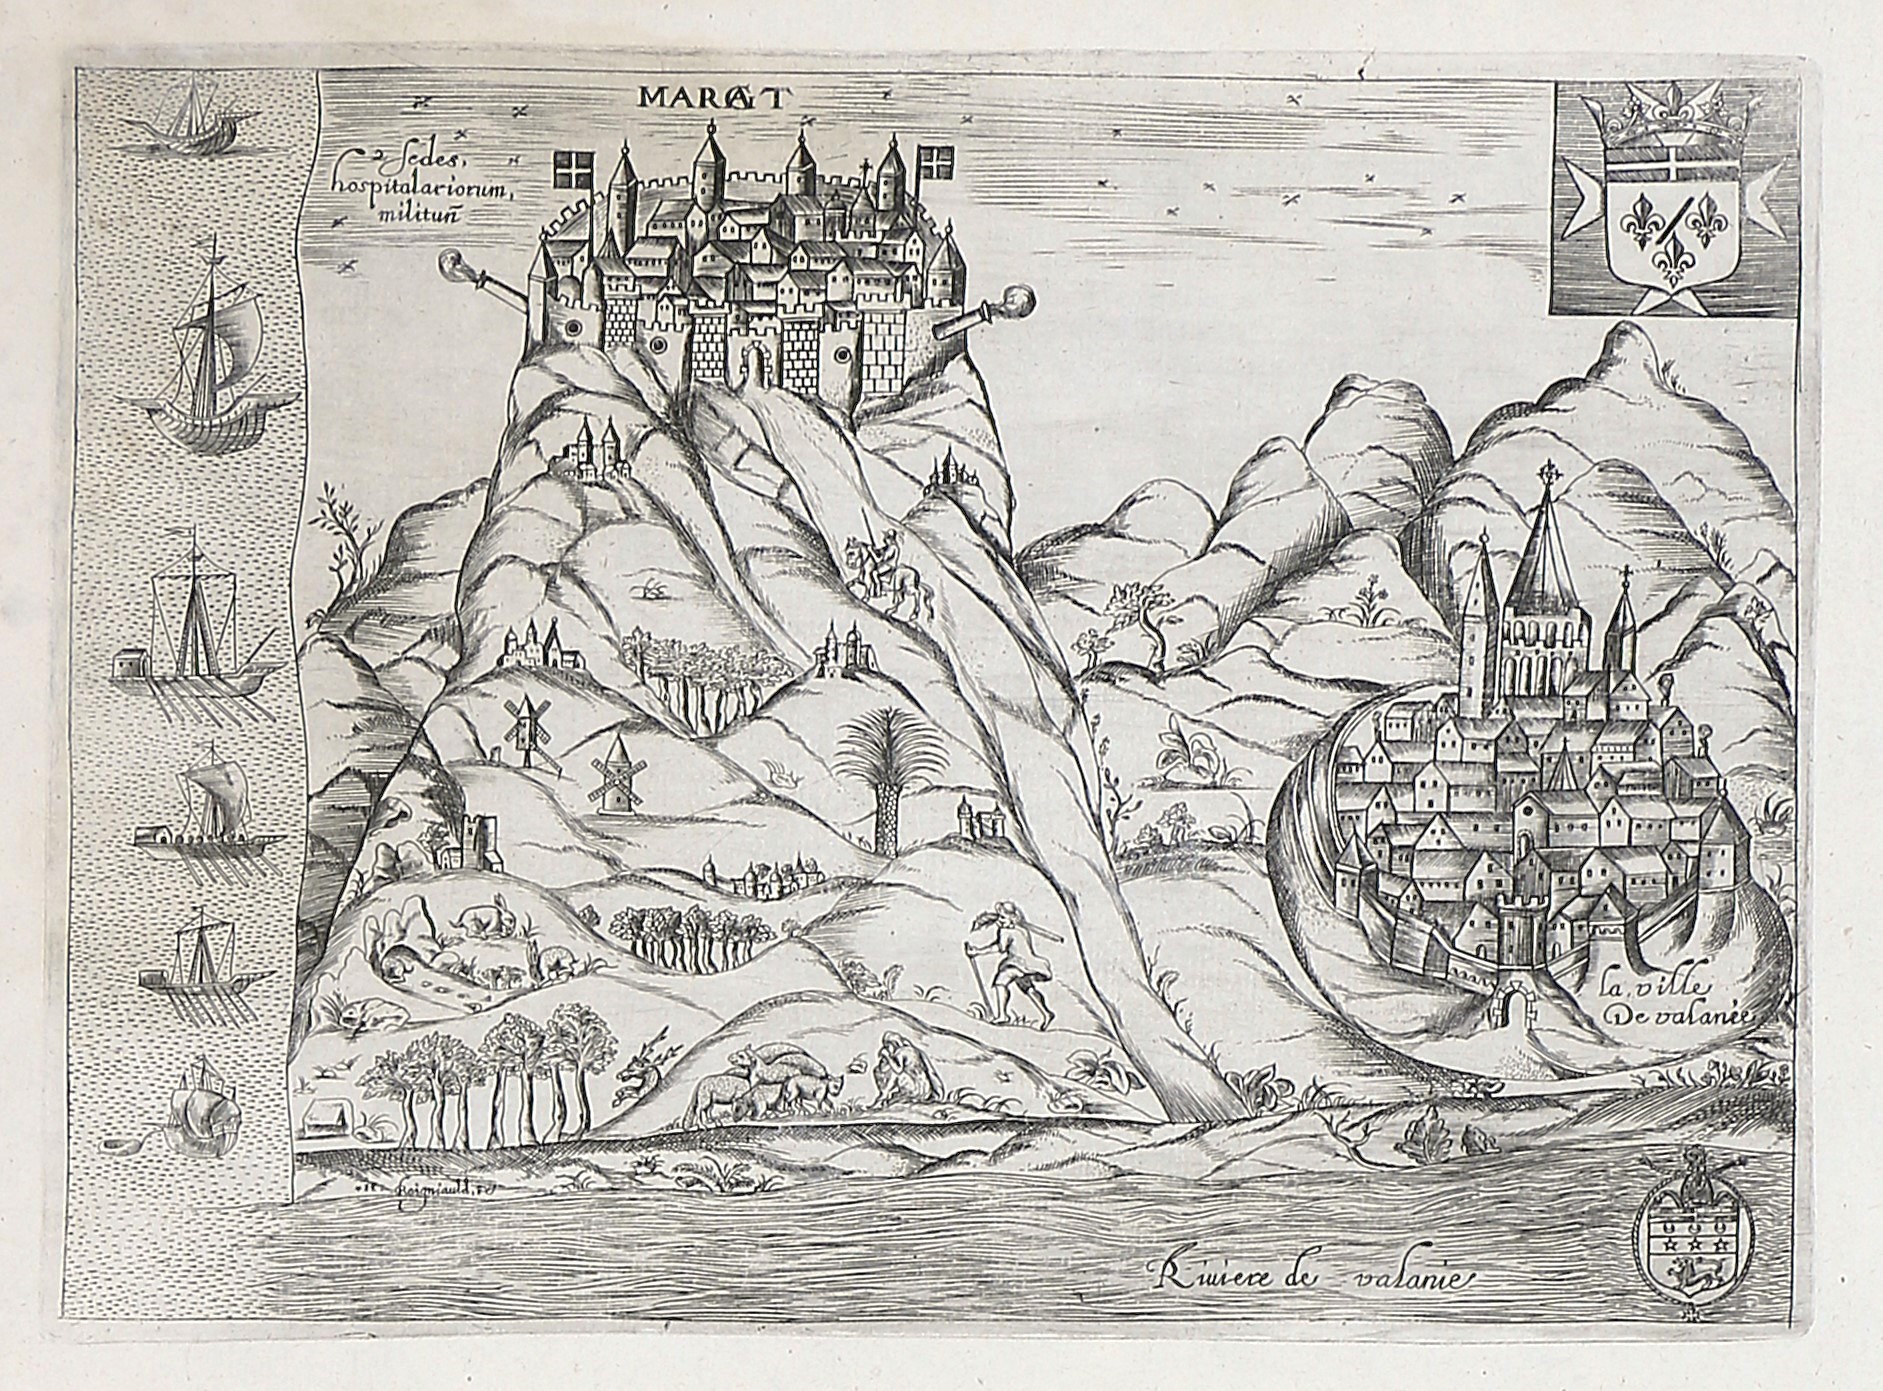 MARGAT
2 sedes,
hospitalariorum,
militun̄
la, ville
De valanie
Riuiere de valanie